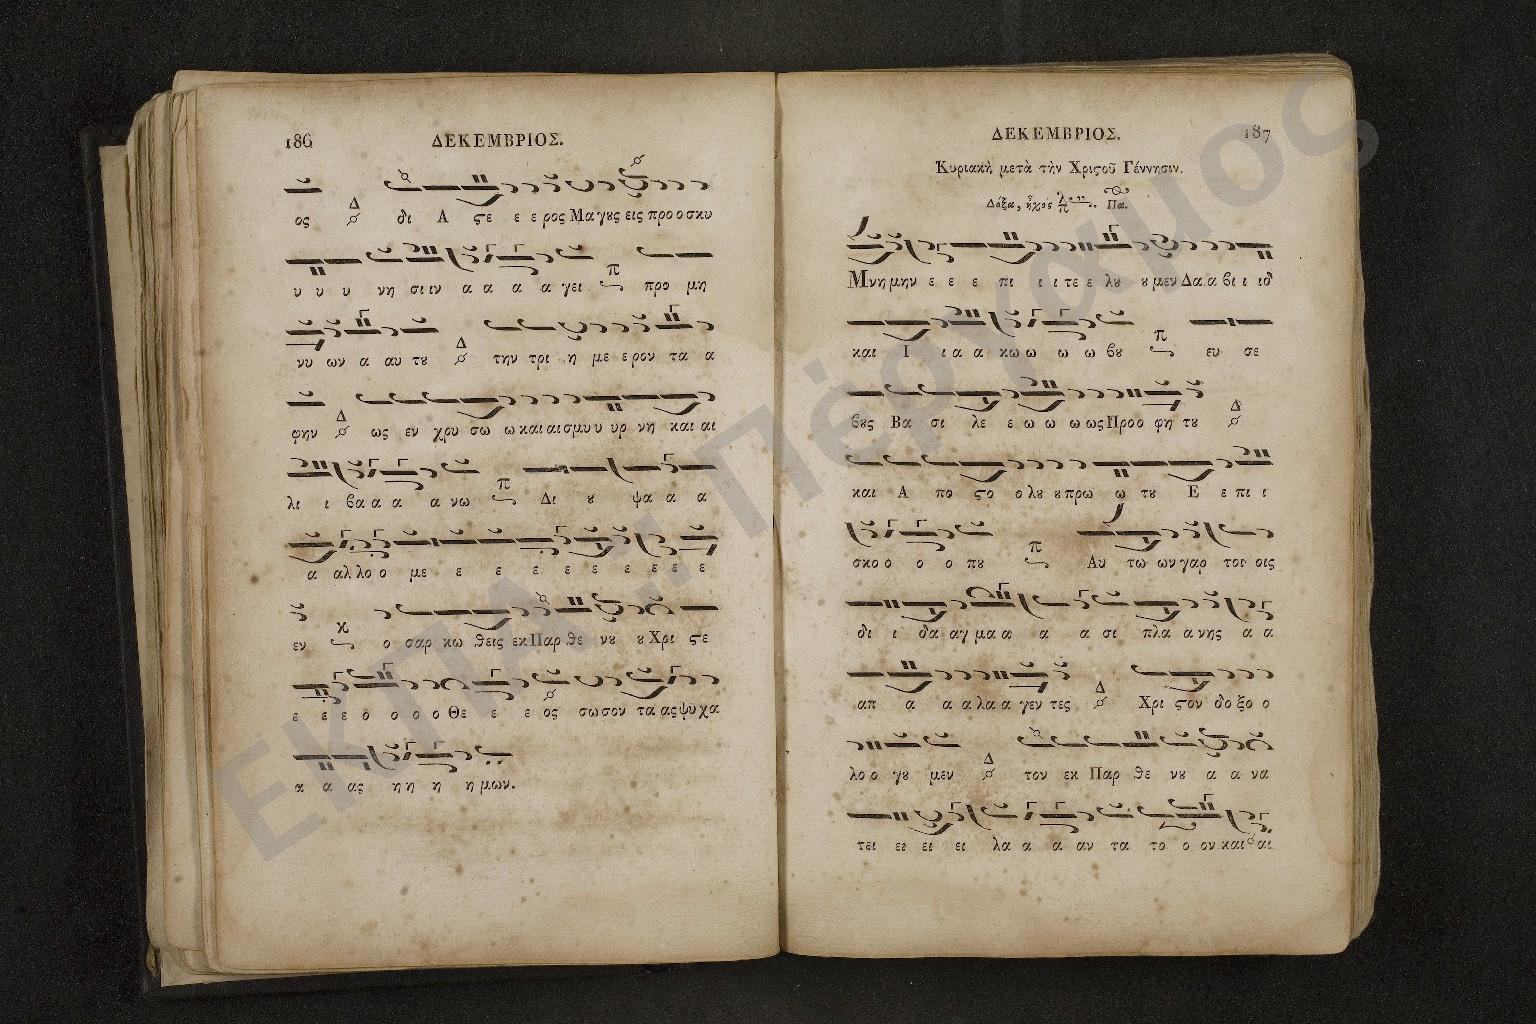 186 ΔΕΚΕΜΒΡΙΟΣ.
ος Δ δι Α ϛε ε ε ρος Μα γȣς εις προ ο σκυ
υ υ υ νη σι ιν α α α α γει π προ μη
νυ ων α αυ τȣ Δ την τρι η με ε ρον τα α
φην Δ ως εν χρυ σω ω και αι σμυ υ υρ νη και αι
λι ι βα α α α νω π Δι ȣ ψα α α
α αλ λο ο με ε ε ε ε ε ε ε ε
εν κ ο σαρ κω θεις εκ Παρ θε νȣ ȣ Χρι ϛε
ε ε ε ο ο ο ο Θε ε ε ος σω σον τα ας ψυ χα
α α ας η η η η μων.
ΔΕΚΕΜΒΡΙΟΣ. 187
Κυριακὴ μετὰ τὴν Χριϛοῦ Γέννησιν.
Δόξα, ἦχος Πα.
Μνη μην ε ε ε πι ι ι τε ε λȣ ȣ μεν Δα α βι ι ιδ
και Ι ι α α κω ω ω ω βȣ π ευ σε
βȣς Βα σι λε ε ω ω ω ως Προ ο φη τȣ Δ
και Α πο ϛο ο λȣ ȣ πρω ω τȣ Ε ε πι ι
σκο ο ο ο πȣ π Αυ τω ων γαρ τοι οις
δι ι δα αγ μα α α α σι πλα α νης α α
απ α α α λα α γεν τες Δ Χρι ϛον δο ξο ο
λο ο γȣ μεν Δ τον εκ Παρ θε νȣ α α να
τει ει ει ει λα α α αν τα το ο ον και αι
ΕΚΠΑ :: Πέργαμος